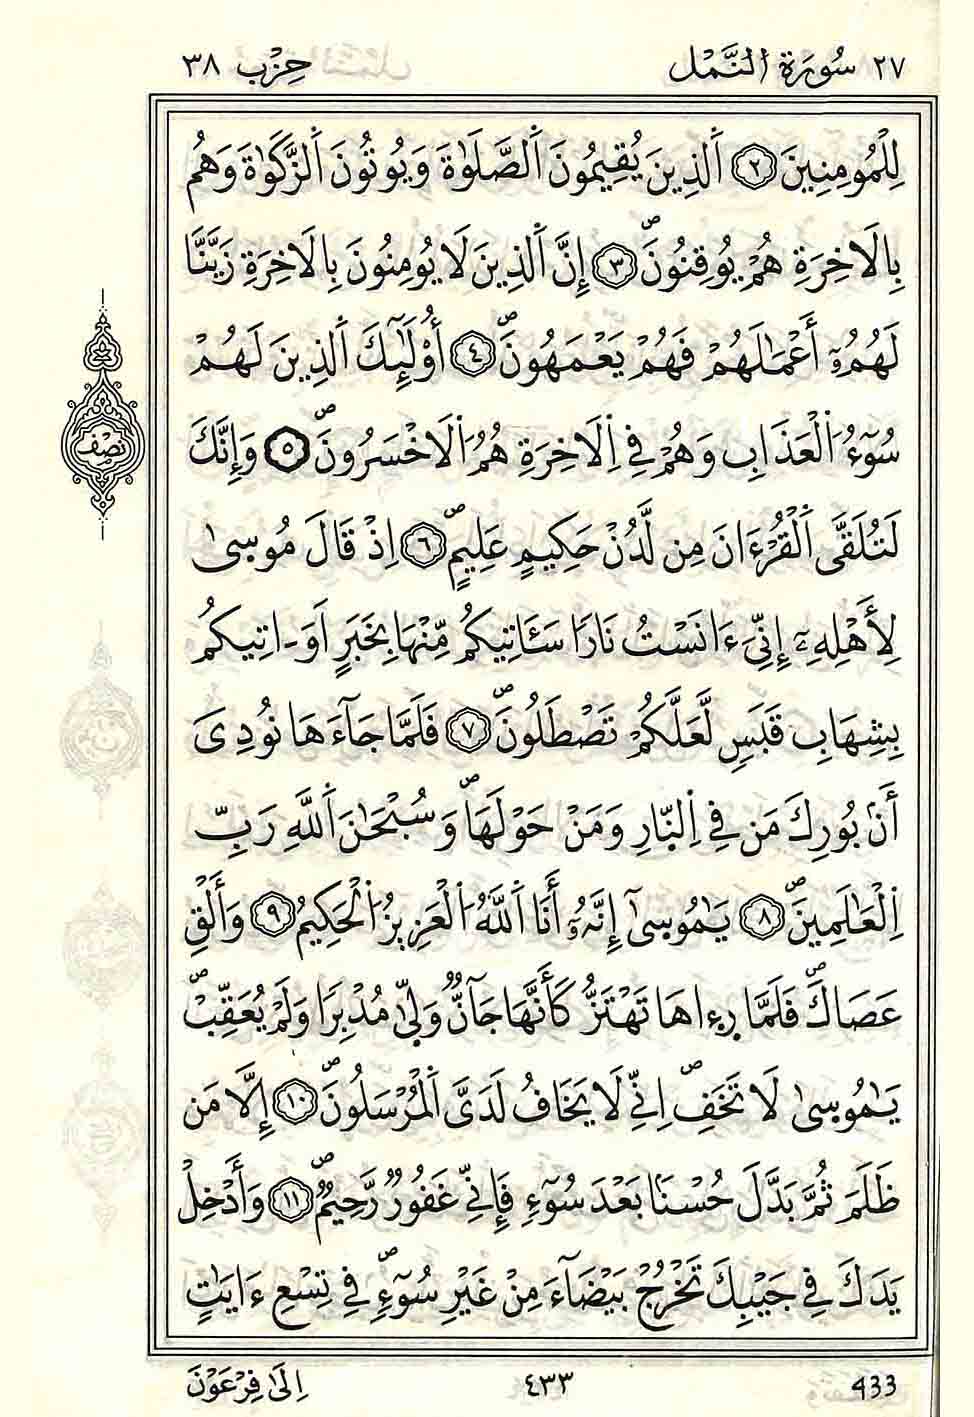 ٢٧ سُورَةُ اَ۬لنَّمْلِ حِزْب ٣٨
لِلْمُومِنِينَ ٢ اَ۬لذِينَ يُقِيمُونَ اَ۬لصَّلَوٰةَ وَيُوتُونَ اَ۬لزَّكَوٰةَ وَهُم
بِالَاخِرَةِ هُمْ يُوقِنُونَۖ ٣ إِنَّ اَ۬لذِينَ لَا يُومِنُونَ بِالَاخِرَةِ زَيَّنَّا
لَهُمُۥٓ أَعْمَٰلَهُمْ فَهُمْ يَعْمَهُونَۖ ٤ أُوْلَٰٓئِكَ اَ۬لذِينَ لَهُمْ
سُوٓءُ اُ۬لْعَذَابِ وَهُمْ فِے اِ۬لَاخِرَةِ هُمُ اُ۬لَاخْسَرُونَۖ ٥ وَإِنَّكَ
نصف
لَتُلَقَّى اَ۬لْقُرْءَانَ مِن لَّدُنْ حَكِيمٍ عَلِيمٍۖ ٦ اِذْ قَالَ مُوسىٰ
لِأَهْلِهِۦٓ إِنِّيَ ءَانَسْتُ نَارٗا سَـَٔاتِيكُم مِّنْهَا بِخَبَرٍ اَوَ اتِيكُم
بِشِهَابِ قَبَسٖ لَّعَلَّكُمْ تَصْطَلُونَۖ ٧ فَلَمَّا جَآءَهَا نُودِيَ
أَنۢ بُورِكَ مَن فِے اِ۬لنّ۪ارِ وَمَنْ حَوْلَهَاۖ وَسُبْحَٰنَ اَ۬للَّهِ رَبِّ
اِ۬لْعَٰلَمِينَۖ ٨ يَٰمُوسىٰٓ إِنَّهُۥٓ أَنَا اَ۬للَّهُ اُ۬لْعَزِيزُ اُ۬لْحَكِيمُ ٩ وَأَلْقِ
عَصَاكَۖ فَلَمَّا ر۪ء۪اهَا تَهْتَزُّ كَأَنَّهَا جَآنّٞ وَلّ۪ىٰ مُدْبِرٗا وَلَمْ يُعَقِّبْۖ
يَٰمُوسىٰ لَا تَخَفِۖ اِنِّے لَا يَخَافُ لَدَيَّ اَ۬لْمُرْسَلُونَۖ ١٠ إِلَّا مَن
ظَلَمَ ثُمَّ بَدَّلَ حُسْنَاۢ بَعْدَ سُوٓءٖ فَإِنِّے غَفُورٞ رَّحِيمٞۖ ١١ وَأَدْخِلْ
يَدَكَ فِے جَيْبِكَ تَخْرُجْ بَيْضَآءَ مِنْ غَيْرِ سُوٓءٖۖ فِے تِسْعِ ءَايَٰتٍ
433 ٤٣٣ اِلَىٰ فِرْعَوْنَ